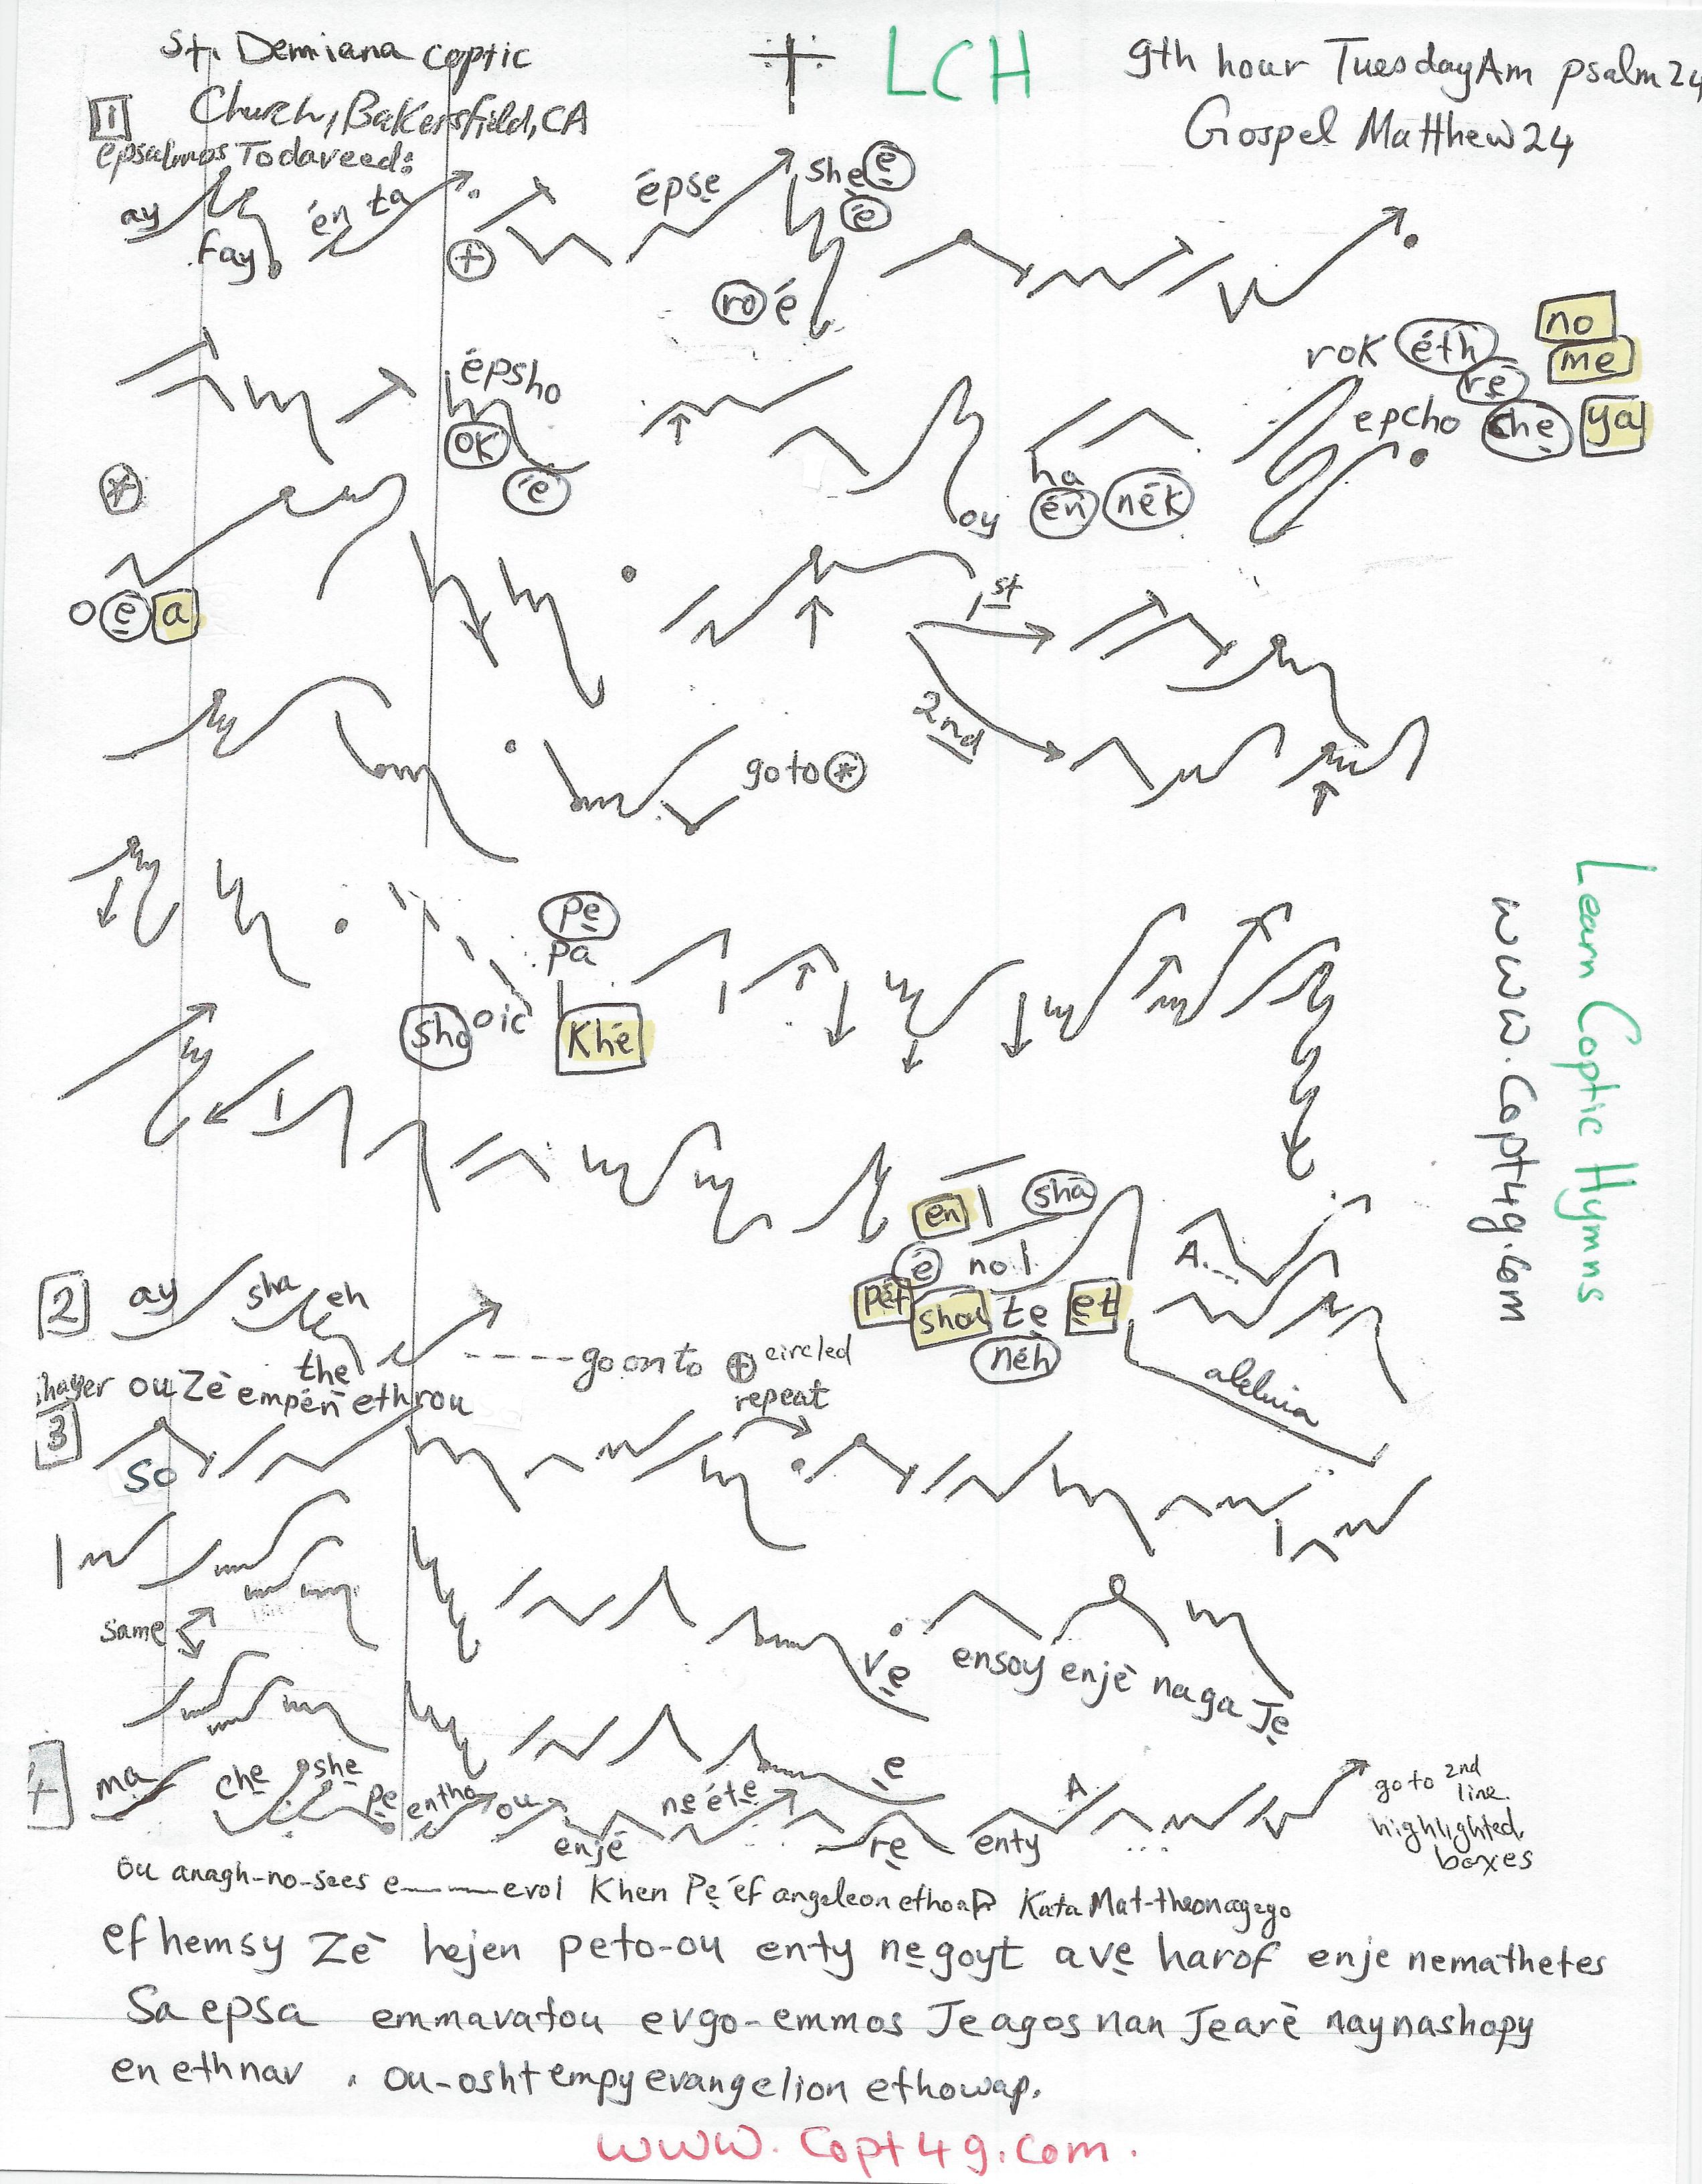 St. Demiana Coptic
Church, Bakersfield, CA
LCH
9th hour Tuesday Am psalm 24
Gospel Matthew 24
1
epsalmos Todaveed:
ay
fay
én ta
+
épse
she e
é
ro é
épsho
ok
é
oy
ha
én nék
rok éth
re
epcho she
no
me
ya
*
o e a
1st
2nd
go to *
pe
pa
sho oic
Khé
en
sha
é no
pét
shou te et
néh
A...
aleluia
Learn Coptic Hymns
www.Copt4g.com
2
ay sha eh
the
----goonto + circled
repeat
ouZè empén ethrou
3
So
same
ve
ensoy enjè naga Je
e
4
ma che she pe entho ou
enjé
neéte
re
enty
A
go to 2nd
line
highlighted
boxes
ou anagh-no-sees e——evol Khen Pe éf angeleon ethoaP Kata Mat-theonagego
efhemsy Zè hejen peto-ou enty negoyt ave harof enje nemathetes
Sa epsa emmavatou evgo-emmos Jeagos nan Jearè naynashopy
en ethnav . ou-osht empy evangelion ethowap.
www.Copt4g.com.